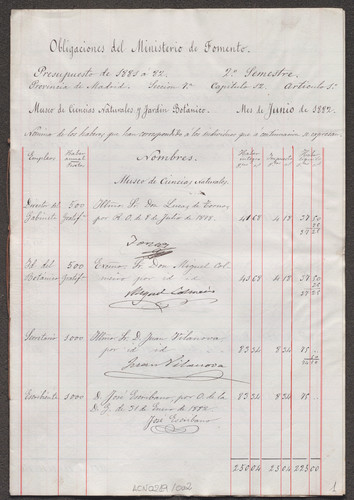 Obligaciones del Ministerio de Fomento.
Presupuesto de 1881 a 82. 2º Semestre.
Provincia de Madrid. Sección 7ª Capítulo 12. Artículo 1º
Museo de Ciencias Naturales y Jardín Botánico. Mes de Junio de 1882.
Nómina de los haberes que han correspondido á los individuos que á continuación se expresan
Empleos Haber anual Pesetas Nombres. Haber íntegro Impuesto Haber líquido
Museo de Ciencias Naturales.
Director del 500 Illmo. Sr. Don Lucas de Tornos
Gabinete Gratifón por R. O. de 8 de Julio de 1878. 41 68 4 18 37 50
Tornos
Id. del 500 Excmo. Sr. Don Miguel Col-
Botánico Gratifón meiro por id id 41 68 4 18 37 50
Miguel Colmeiro
Secretario 1000 Illmo. Sr. D. Juan Vilanova
por id id 83 34 8 34 75
Juan Vilanova
Escribiente 1000 D. José Escribano, por O. de la 83 34 8 34 75
D. G. de 28 de Enero de 1872.
José Escribano
250 04 25 04 225 00
ACN0289/002
1